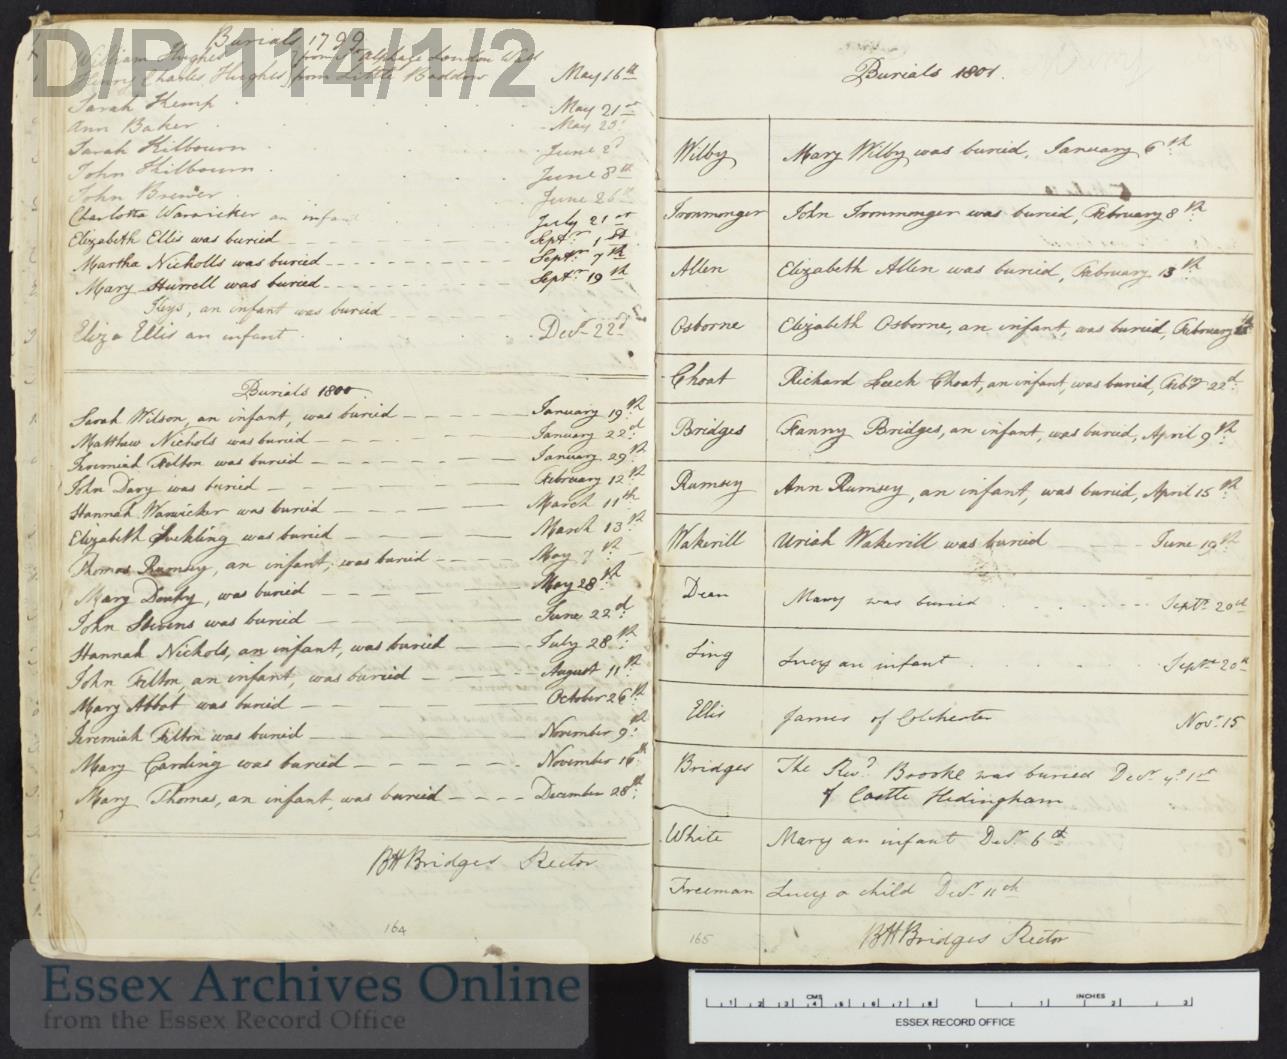 D/P 114/1/2
Burials 1799
William Hughes from St Alphage London Wall
Henry Charles Hughes from Little Baddow May 16th
Sarah Kemp May 21st
Ann Baker May 25
Sarah Kilbourn June 2d
John Kilbourn June 8th
John Brewer June 26th
Charlotta Warricker an infant July 21st
Elizabeth Ellis was buried Septr 1st
Martha Nicholls was buried Septr 7th
Mary Hurrell was buried Septr 19th
Keys, an infant was buried
Eliza Ellis an infant Decr 22d
Burials 1800
Sarah Wilson, an infant, was buried January 19th
Matthew Nichols was buried January 22d
Jeremiah Felton was buried January 29th
John Davy was buried February 12th
Hannah Warwicker was buried March 11th
Elizabeth Suckling was buried March 13th
Thomas Rumsey, an infant, was buried May 7th
Mary was buried May 28th
John Stevens was buried June 22d
Hannah Nichols, an infant, was buried July 28th
John Felton, an infant, was buried August 11th
Mary Abbot was buried October 26th
Jeremiah Felton was buried November 9th
Mary Carding was buried November 16th
Mary Thomas, an infant, was buried December 28th
BHBridges Rector
164
Burials 1801.
Wilby Mary Wilby was buried, January 6th
Ironmonger John Ironmonger was buried, February 8th
Allen Elizabeth Allen was buried, February 13th
Osborne Elizabeth Osborne, an infant, was buried, February
Choat Richard Leech Choat, an infant, was buried, Feby 22d
Bridges Fanny Bridges, an infant, was buried, April 9th
Rumsey Ann Rumsey, an infant, was buried, April 15th
Wakerill Uriah Wakerill was buried June 19th
Dean Mary was buried Septr 20th
Ling Lucy an infant Septr 20th
Ellis James of Colchester Novr 15
Bridges The Revd Brooke was buried Decr ye 1st
of Castle Hedingham
White Mary an infant Decr 6th
Freeman Lucy a child Decr 11th
BHBridges Rector
165
Essex Archives Online
from the Essex Record Office
CMS
1 2 3 4 5 6 7 8
INCHES
1 2 3
ESSEX RECORD OFFICE